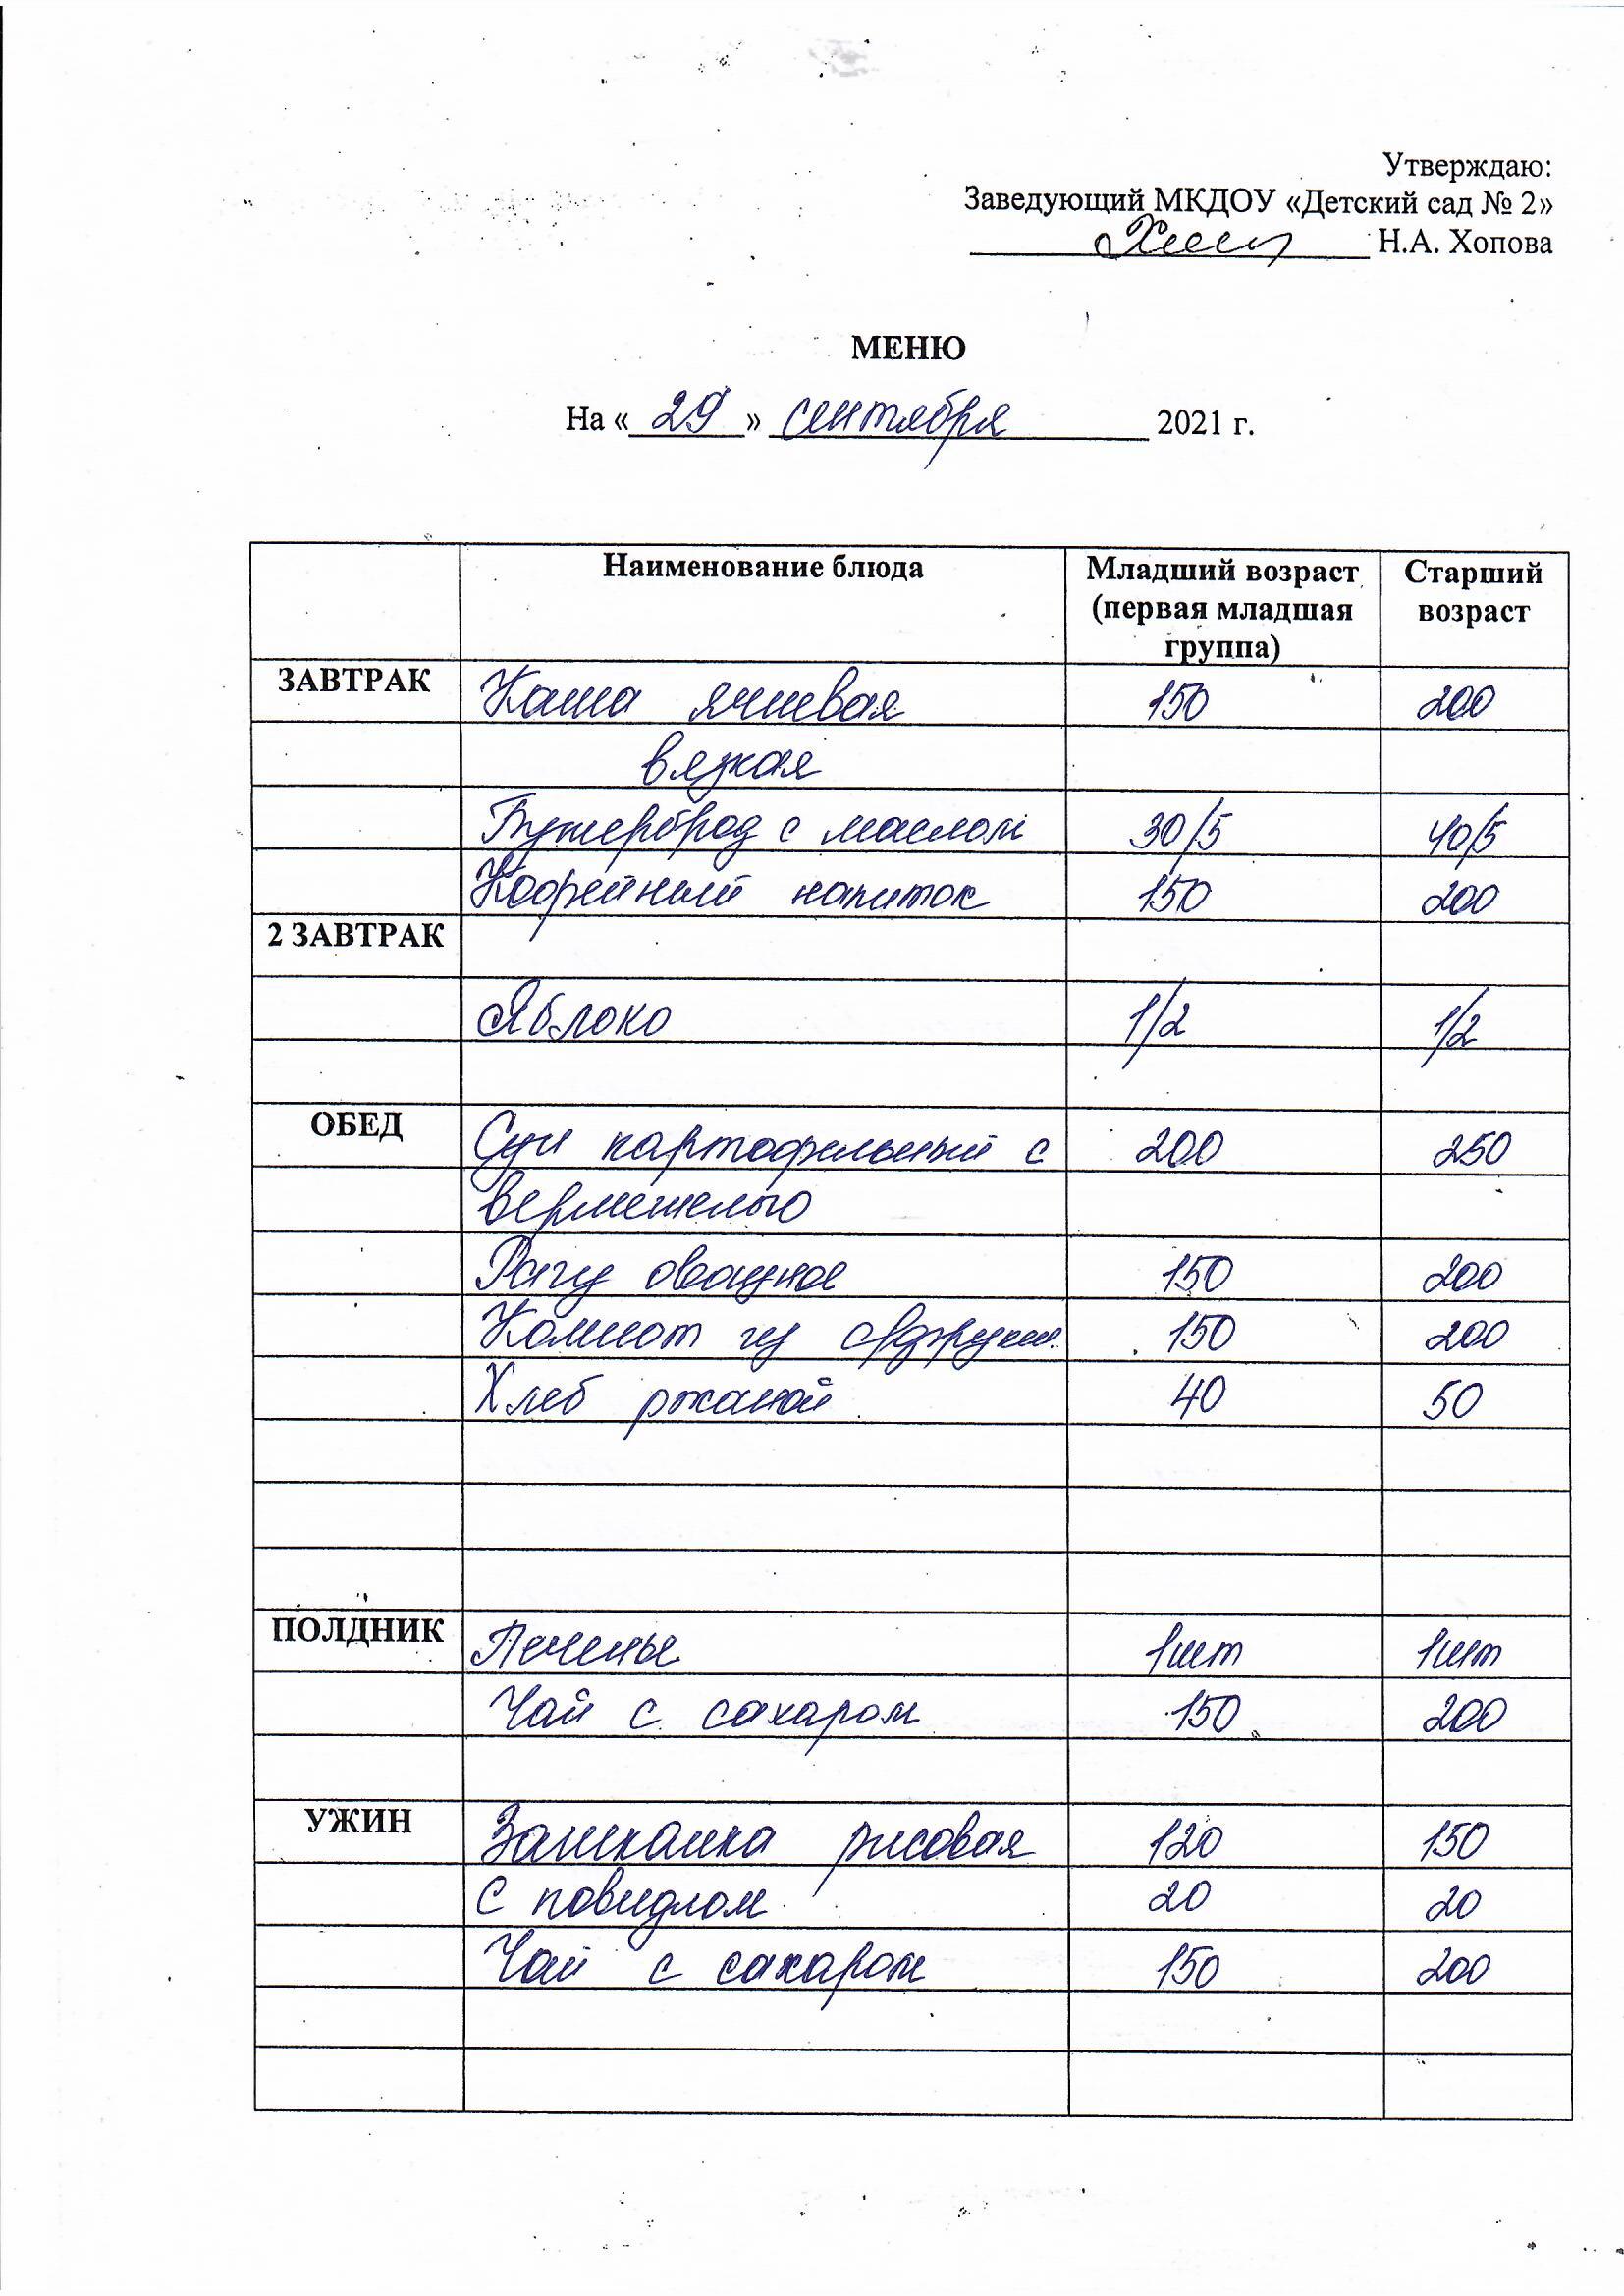 Утверждаю:
Заведующий МКДОУ «Детский сад № 2»
Н.А. Хопова
МЕНЮ
На « 29 » сентября 2021 г.
Наименование блюда Младший возраст (первая младшая группа) Старший возраст
ЗАВТРАК Каша ячневая 150 200
вязкая
Бутерброд с маслом 30/5 40/5
Кофейный напиток 150 200
2 ЗАВТРАК
Яблоко 1/2 1/2
ОБЕД Суп картофельный с 200 250
вермешелью
Рагу овощное 150 200
Компот из 150 200
Хлеб ржаной 40 50
ПОЛДНИК Печенье 1шт 1шт
Чай с сахаром 150 200
УЖИН Запеканка рисовая 120 150
С повидлом 20 20
Чай с сахаром 150 200